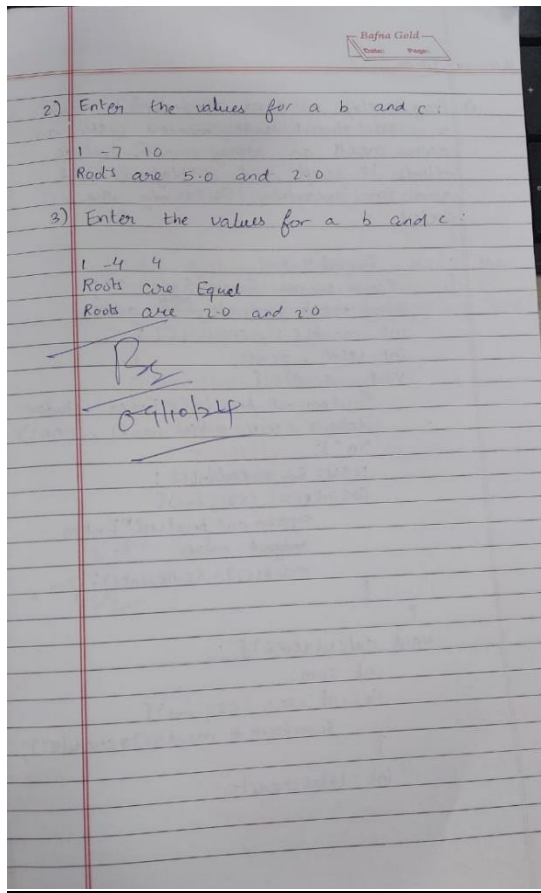 Bafna Gold
Date: Page:
2) Enter the values for a b and c :
1 -7 10
Roots are 5.0 and 2.0
3) Enter the values for a b and c :
1 -4 4
Roots are Equal
Roots are 2.0 and 2.0
09/10/24